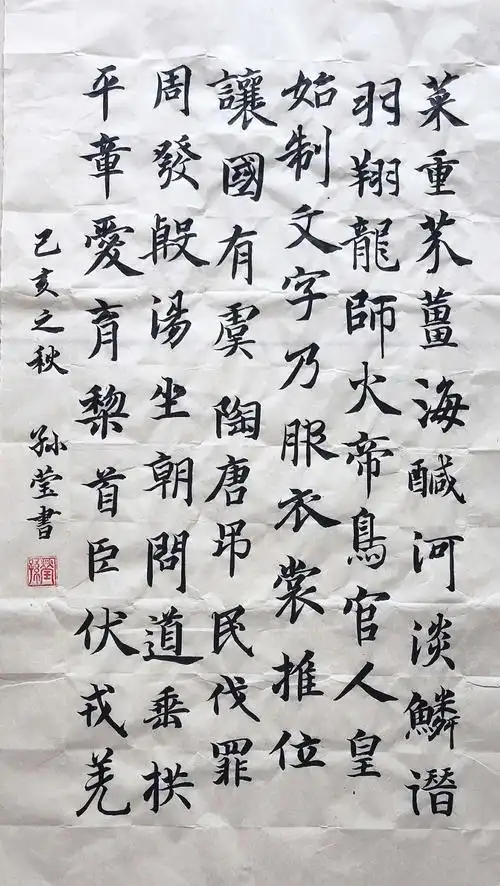 菜重芥薑海鹹河淡鱗潛
羽翔龍師火帝鳥官人皇
始制文字乃服衣裳推位
讓國有虞陶唐吊民伐罪
周發殷湯坐朝問道垂拱
平章愛育黎首臣伏戎羌
己亥之秋 孙莹書